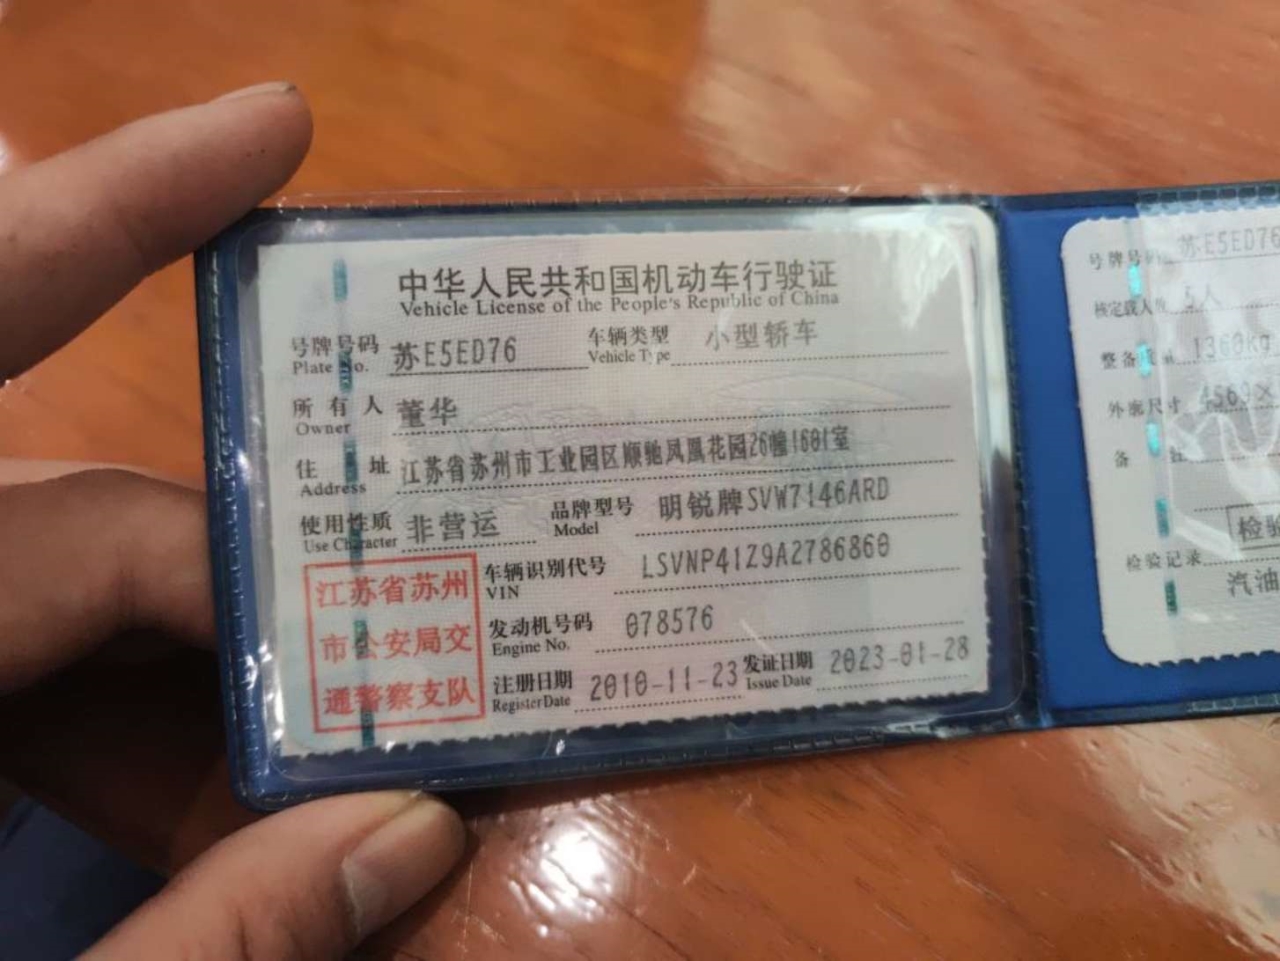 中华人民共和国机动车行驶证
Vehicle License of the People's Republic of China
号牌号码 苏E5ED76 车辆类型 小型轿车
Plate No. Vehicle Type
所有人 董华
Owner
住址 江苏省苏州市工业园区顺驰凤凰花园26幢1601室
Address
使用性质 非营运 品牌型号 明锐牌SVW7146ARD
Use Character Model
车辆识别代号 LSVNP41Z9A2786860
VIN
发动机号码 078576
Engine No.
注册日期 2010-11-23 发证日期 2023-01-28
Register Date Issue Date
江苏省苏州
市公安局交
通警察支队
号牌号码 苏E5ED76
核定载人数 5人
整备质量 1360kg
外廓尺寸 4569×
备注
检验
检验记录
汽油